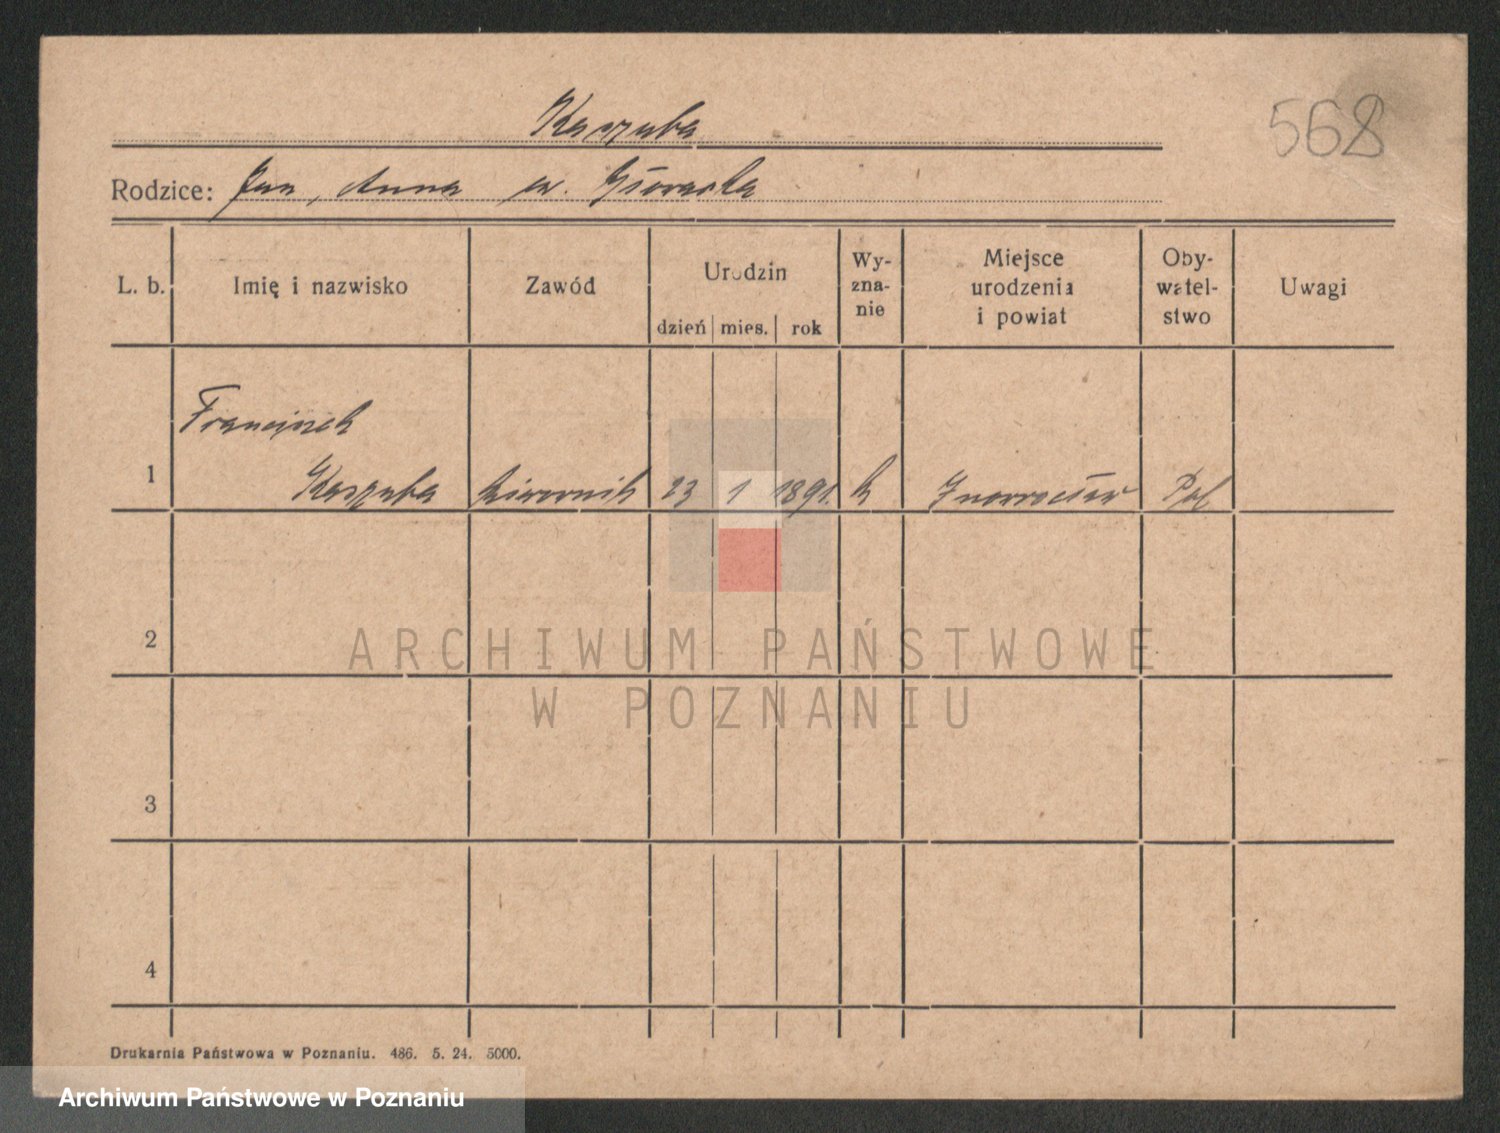 568
Kaszuba
Rodzice: Jan, Anna
L. b.
Imię i nazwisko
Zawód
Urodzin
dzień mies. rok
Wy-
zna-
nie
Miejsce
urodzenia
i powiat
Oby-
watel-
stwo
Uwagi
Franciszek
1 Kaszuba kierownik 23 1 1891 k Inowrocław Pol
2
3
4
ARCHIWUM PAŃSTWOWE
W POZNANIU
Drukarnia Państwowa w Poznaniu. 486. 5. 24. 5000.
Archiwum Państwowe w Poznaniu